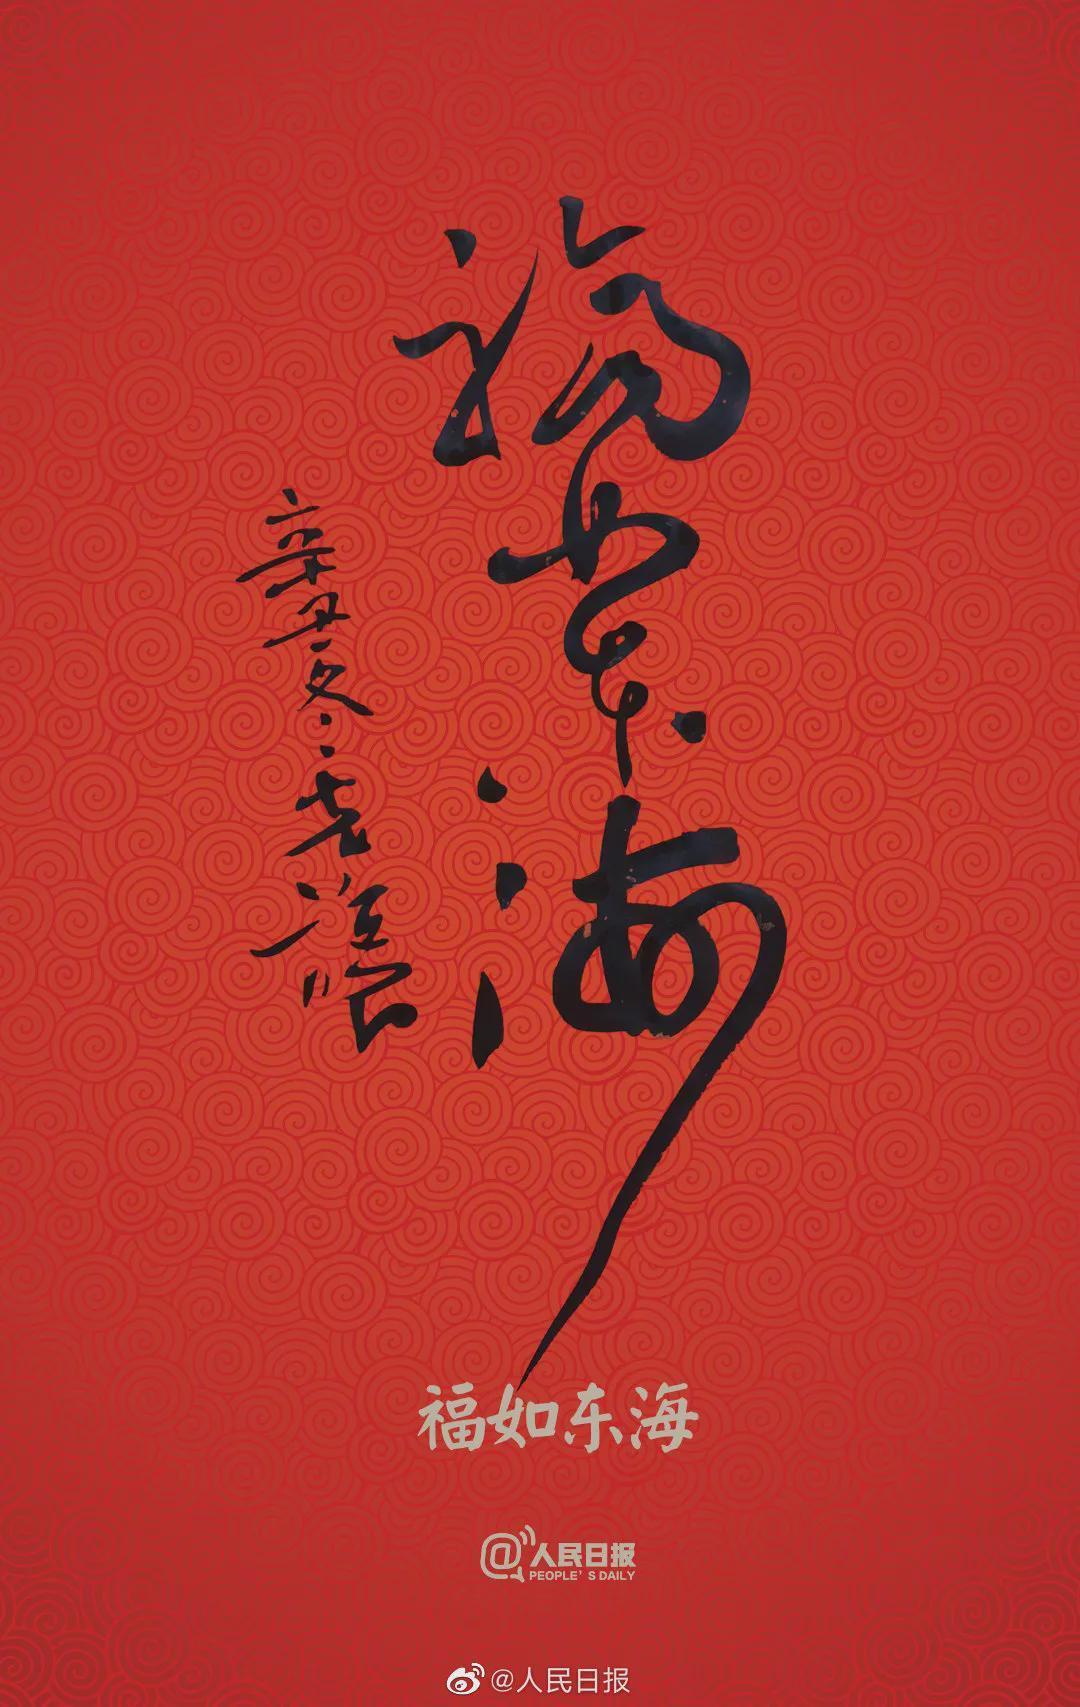 福如东海
辛丑冬
福如东海
@人民日报
PEOPLE'S DAILY
@人民日报